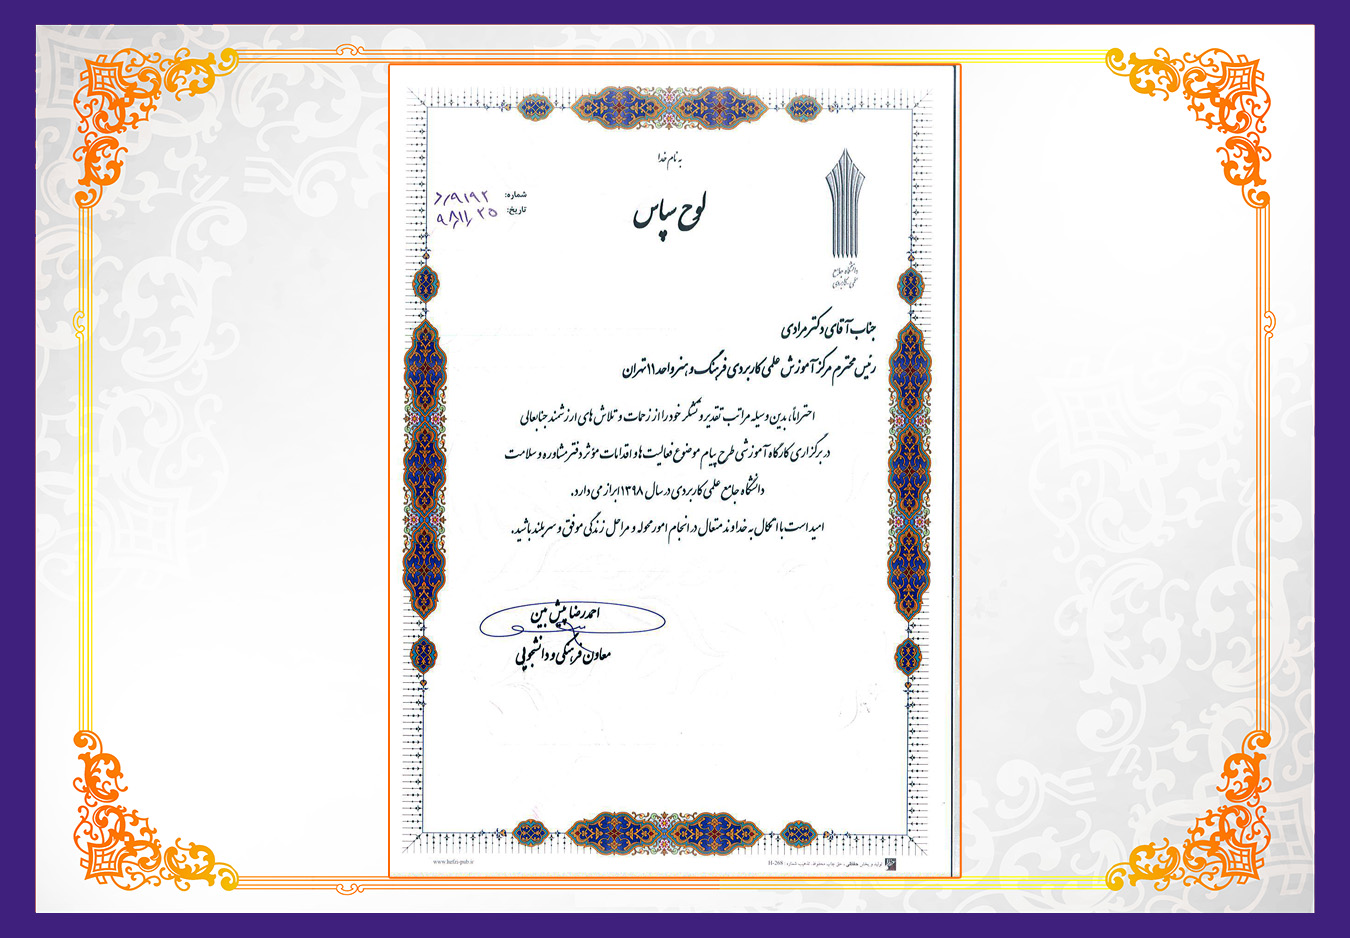 به نام خدا
شماره: د/۹۱۹۲
تاریخ: ۹۸/۱۱/۲۵
لوح سپاس
دانشگاه جامع
علمی کاربردی
جناب آقای دکتر مرادی
رئیس محترم مرکز آموزش علمی کاربردی فرهنگ و هنر واحد ۱۱ تهران
احتراماً، بدین وسیله مراتب تقدیر و تشکر خود را از زحمات و تلاش های ارزشمند جنابعالی
در برگزاری کارگاه آموزشی طرح پیام موضوع فعالیت ها و اقدامات مؤثر دفتر مشاوره و سلامت
دانشگاه جامع علمی کاربردی در سال ۱۳۹۸ ابراز می دارد.
امید است با اتکال به خداوند متعال در انجام امور محوله و مراحل زندگی موفق و سربلند باشید.
احمدرضا پیش بین
معاون فرهنگی و دانشجویی
تولید و پخش حفاظی ، حق چاپ محفوظ کدثبت شماره : H-268
www.hefzi-pub.ir